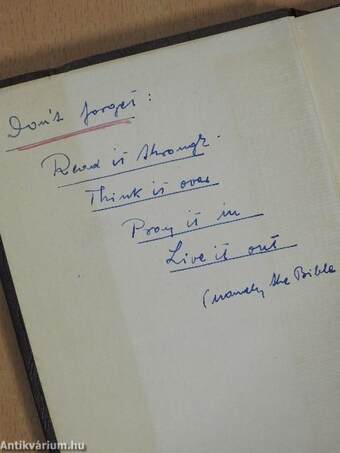 Don't forget:
Read it through.
Think it over
Pray it in
Live it out
(namely the Bible
Antikvárium.hu